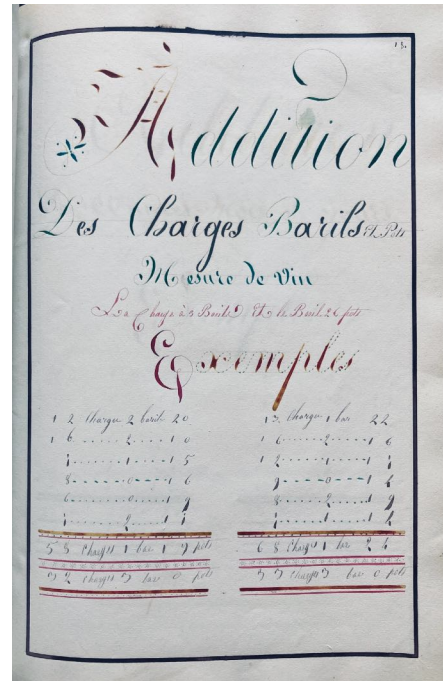 13.
Addition
Des Charges Barils Et Pots
Mesure de Vin
La Charge à 3 Barils Et le Baril 26 pots
Exemples
12 Charges 2 barils 20
16 2 10
7 1 15
8 0 16
6 0 19
7 2 17
58 Charges 1 bar 19 pots
Charges bar 0 pots
13 Charges 1 bar 22
16 2 16
12 1
0
8 2 19
1 12
68 Charges 1 bar 24
Charges bar 0 pots